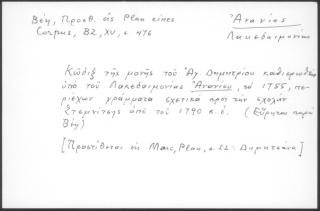 Βέη, Προσθ. εἰς Plan εἰνες
Corpus, BZ, XV, σ 476
Ἀνανίας
Λακεδαιμονίας
Κῶδιξ τῆς μονῆς τοῦ Ἁγ Δημητρίου καθιερωθεὶς
ὑπὸ τοῦ Λακεδαιμονίας Ἀνανίου, τῷ 1755, πε-
ριέχων γράμματα σχετικὰ πρὸς τὴν σχολὴν
Στεμνίτσης ἀπὸ τοῦ 1790 κ. ἑ. (Εὕρηται παρὰ
Βέῃ)
[Προστίθεται ἐν Marc, Plan, σ. Δημητσάνα]